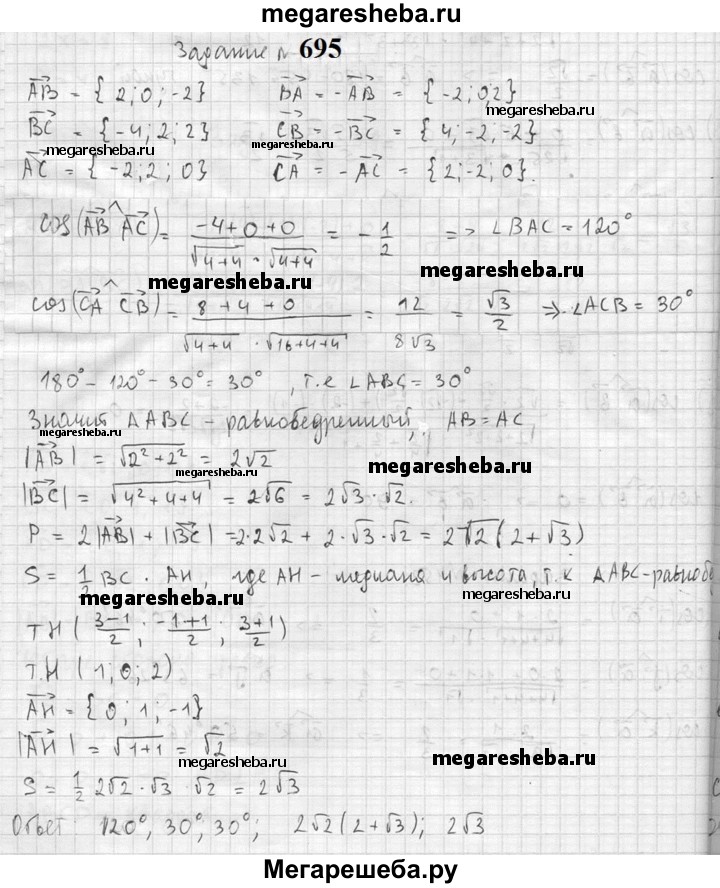 megaresheba.ru
Задание № 695
AB = {2; 0; -2} BA = -AB = {-2; 0; 2}
megaresheba.ru
BC = {-4; 2; 2} CB = -BC = {4; -2; -2}
megaresheba.ru
megaresheba.ru
AC = {-2; 2; 0} CA = -AC = {2; -2; 0}.
cos(AB^AC) = (-4+0+0)/(√4+4 · √4+4) = -1/2 => ∠BAC = 120°
megaresheba.ru
megaresheba.ru
cos(CA^CB) = (8+4+0)/(√4+4 · √16+4+4) = 12/(8√3) = √3/2 => ∠ACB = 30°
180° - 120° - 30° = 30°, т.е ∠ABC = 30°
Значит ΔABC - равнобедренный, AB = AC,
megaresheba.ru
|AB| = √2²+2² = 2√2
megaresheba.ru
megaresheba.ru
|BC| = √4²+4+4 = 2√6 = 2√3 · √2.
P = 2|AB| + |BC| = 2·2√2 + 2·√3·√2 = 2√2(2+√3)
S = 1/2 BC · AH, где AH - медиана и высота, т.к ΔABC-равнобе
megaresheba.ru
megaresheba.ru
т H ((3-1)/2; (-1+1)/2; (3+1)/2)
т.H (1; 0; 2)
AH = {0; 1; -1}
|AH| = √1+1 = √2
megaresheba.ru
megaresheba.ru
S = 1/2 2√2 · √3 · √2 = 2√3
Ответ: 120°, 30°, 30°; 2√2(2+√3); 2√3
Мегарешеба.ру